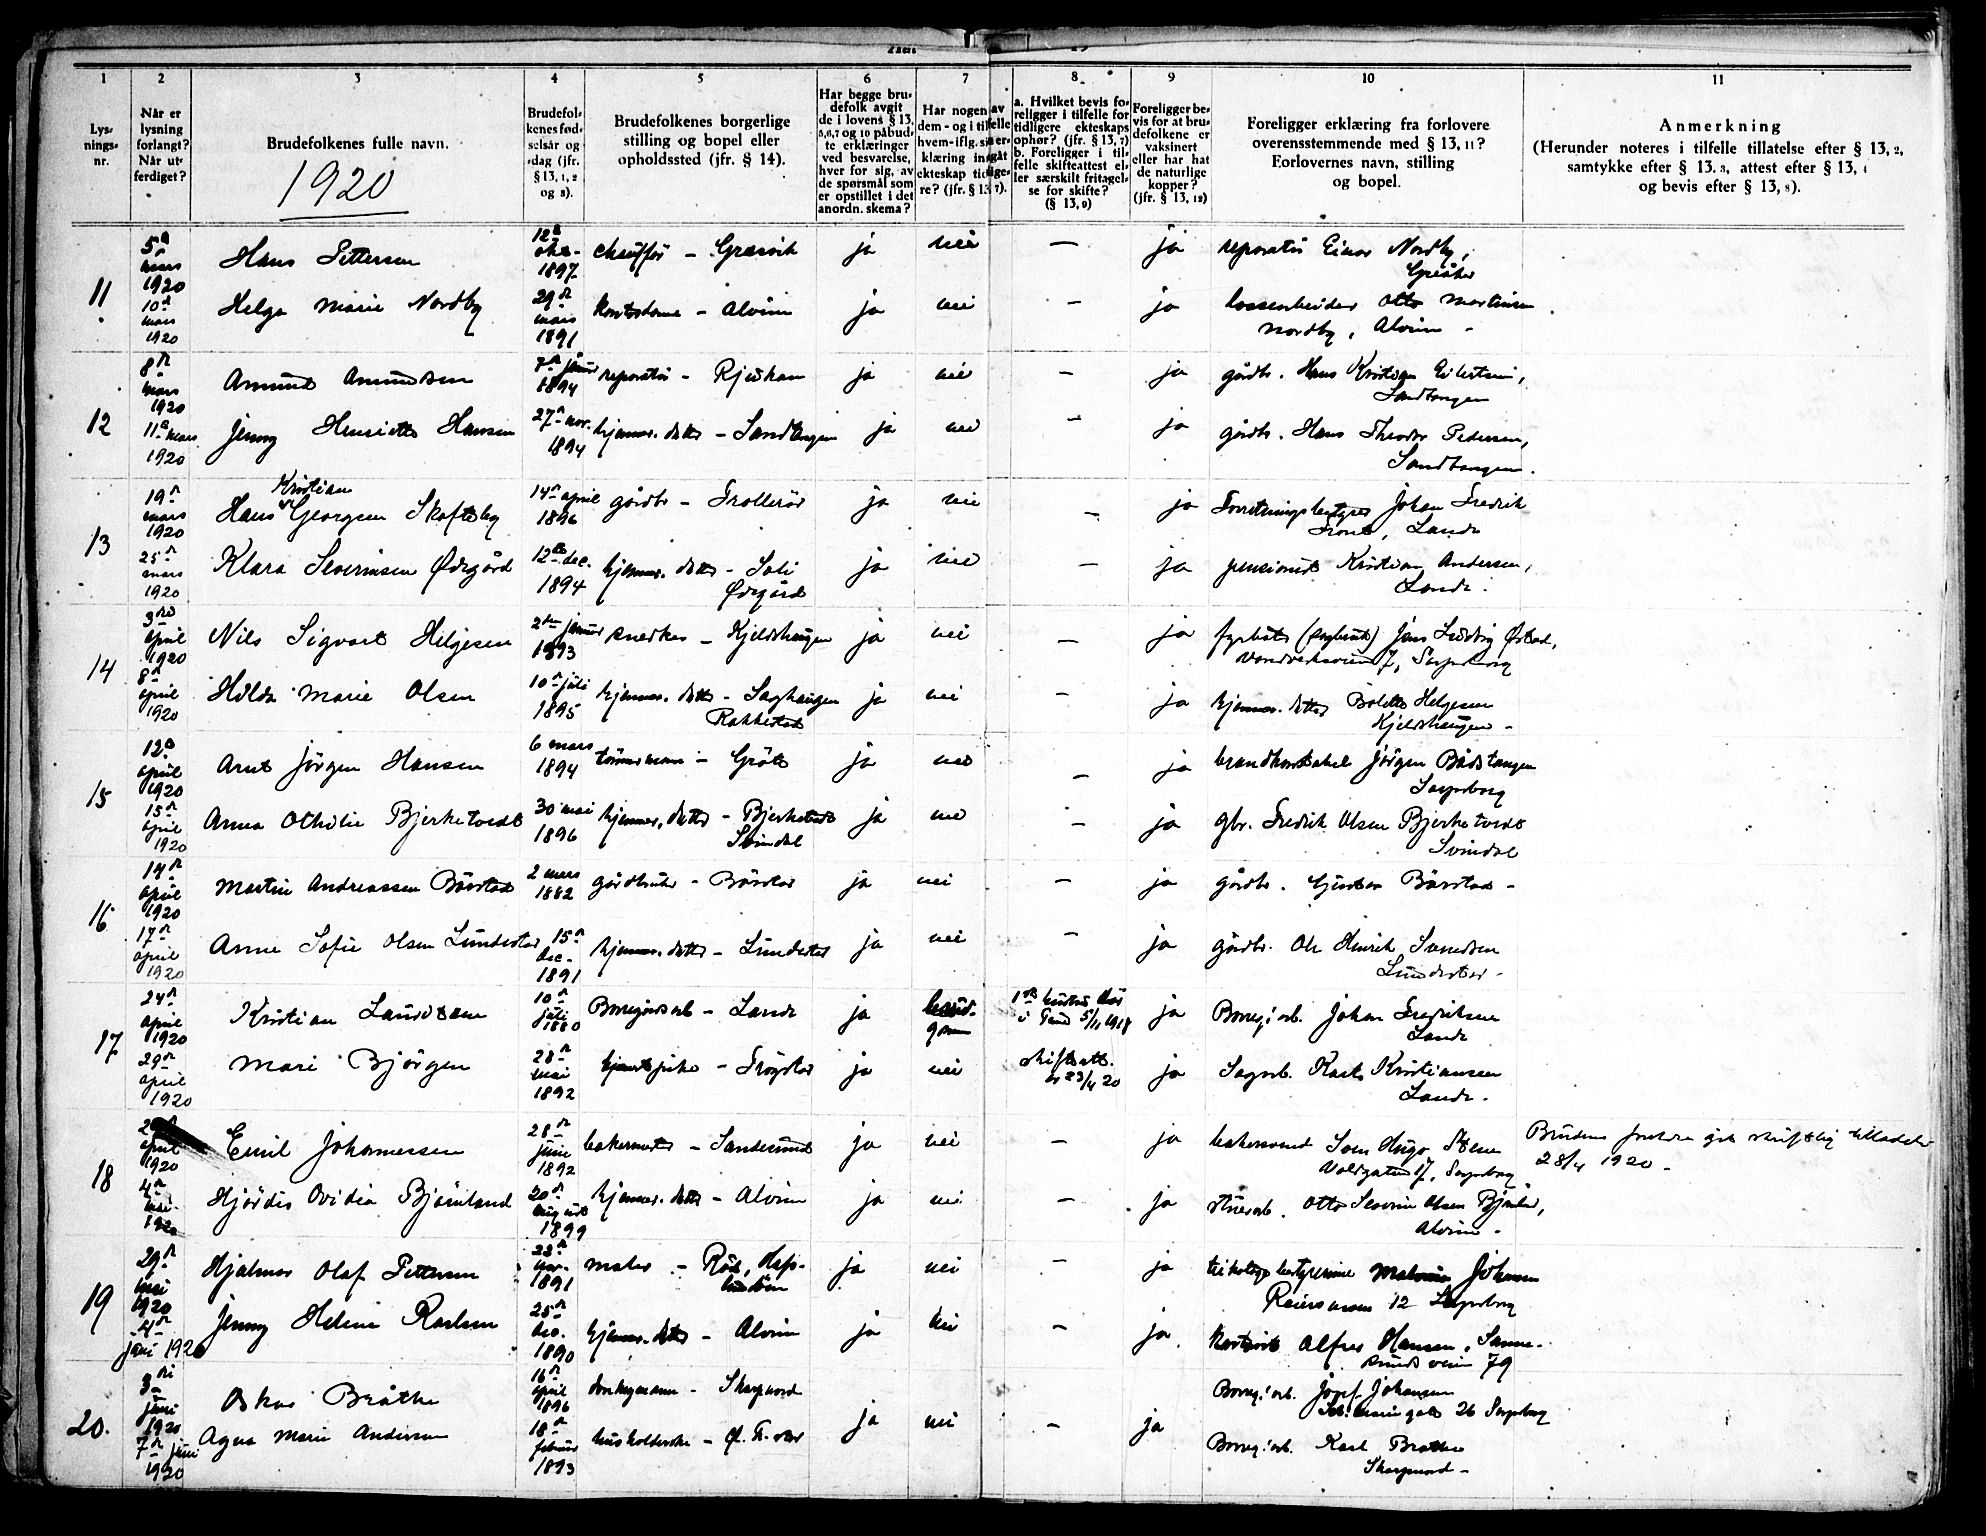 1 2 3 4 5 6 7 8. 9 10 11
Lys-
nings-
nr.
Når er
lysning
forlangt?
Når ut-
ferdiget?
Brudefolkenes fulle navn.
1920
Brudefol-
kenes fød-
selsår og
-dag (jfr.
§ 13, 1, 2
og 3).
Brudefolkenes borgerlige
stilling og bopel eller
opholdssted (jfr. § 14).
Har begge bru-
defolk avgit
de i lovens § 13,
5,6,7 og 10 påbud-
te erklæringer
ved besvarelse,
hver for sig, av
de spørsmål som
er opstillet i det
anordn. skema?
Har nogen av
dem - og i tilfelle
hvem - iflg. sin er-
klæring inngått
ekteskap tidlige-
re? (jfr. § 13, 7).
a. Hvilket bevis fo-
religger i tilfelle for
tidligere ekteskaps
ophør? (jfr. § 13, 7)
b. Foreligger i til-
felle skifteattest el-
ler særskilt fritagel-
se for skifte?
(§ 13, 9)
Foreligger be-
vis for at bru-
defolkene er
vaksinert
eller har hat
de naturlige
kopper?
(jfr. § 13, 12)
Foreligger erklæring fra forlovere
overensstemmende med § 13, 11?
Forlovernes navn, stilling
og bopel.
Anmerkning
(Herunder noteres i tilfelle tillatelse efter § 13, 2,
samtykke efter § 13. 3, attest efter § 13, 4
og bevis efter § 13, 8).
11
5te mars 1920
Hans Pettersen
12te 1897
chauffør - Græsvik ja nei - ja
reparatør Einar Nordby,
Greåker
10de mars 1920
Helga Marie Nordby
29de mars 1891
kontordame - Alvim ja nei - ja
Otto Martinsen
Nordby, Alvim -
12
8de mars 1920
Amund Amundsen
7de januar 1894
reparatør - Rjukan ja nei - ja
gårdbr. Hans Kristian Eilertsen,
Sandtangen
11te mars 1920
Jenny Henriette Hansen
27de nov. 1894
hjemmev. datter - Sandtangen ja nei - ja
gårdbr. Hans Theodor Pedersen,
Sandtangen.
13
19de mars 1920
Kristian
Hans Georgsen Skofteby
14de april 1896
gårdbr - Trollerød ja nei - ja
Forretningsbestyrer Johan Fredrik
Lande
25de mars 1920
Klara Severinsen Ødegård
12te dec. 1894
hjemmev. datter - Soli
Ødegård ja nei - ja
pensionist Kristian Andersen,
Lande.
14
3die april 1920
Nils Sigvart Helgesen
2den januar 1893
snedker - Kjeldshaugen ja nei - ja
fyrbøter (sagbruk) Jens Ludvig Østad,
7, Sarpsborg
8de april 1920
Hilda Marie Olsen
10de juli 1895
hjemmev. datter - Saghaugen
Rakkestad ja nei - ja
hjemmev. datter Bolette Helgesen
Kjeldshaugen -
15
12te april 1920
Arnt Jørgen Hansen
6 mars 1894
tømmermann - Gråtø ja nei - ja
brandkonstabel Jørgen Båstangen
Sarpsborg
15de april 1920
Anna Othilie Bjerketvedt
30 mai 1896
hjemmev. datter - Bjerketvedt
Svindal ja nei - ja
gbr. Fredrik Olsen Bjerketvedt
Svindal
16
14de april 1920
Martin Andreassen Bøvstad
2 mars 1882
gårdbruker - Bøvstad ja nei - ja
gårdbr. Gustav Bøvstad -
17de april 1920
Anne Sofie Olsen Lundestad
15de dec. 1891
hjemmev. datter - Lundestad ja nei - ja
gårdbr. Ole Henrik Svendsen
Lundestad -
17
24de april 1920
Kristian Lauritsen
10de juli 1880
Borregårdsarb - Lande ja brud-
gom
1ste hustru død
i Tand 5/11 1918 ja
Borreg.arb. Johan Fredriksen
Lande
29de april 1920
Mari Bjørgen
28de mai 1892
tjenestepike - Trøgstad ja nei
skifteatt.
av 23/4 20 ja
Sagarb. Karl Kristiansen
Lande.
18
april 1920
Emil Johannessen
28de juni 1892
bakermester - Sandesund ja nei - ja
bakersvend Sven Hugo Steen
Voldgaten 17, Sarpsborg
Brudens foreldre gir skriftlig tilladelse
28/4 1920 -
4de mai 1920
Hjørdis Ovidia Bjørnland
20de august 1899
hjemmev. datter - Alvim ja nei - ja
stuerarb. Otto Severin Olsen Bjørnland,
Alvim -
19
29de mai 1920
Hjalmar Olaf Pettersen
22de nov. 1891
maler - Råd, Haf-
lundsøen ja nei - ja
trikotagebestyrerinne Johansen
12 Sarpsborg
4de juni 1920
Jenny Helene Karlsen
25de dec. 1890
hjemmev. datter - Alvim ja nei - ja.
Alfred Hansen, Sanne-
sundsveien 79
20.
3die juni 1920
Oskar Bråthe
16de april 1896
- Skarpnord
Borreg.arb. Josef Johansen
St. Mariegate 26 Sarpsborg
7de juni 1920
Agna Marie Andersen
18de februar 1893
husholderske - ja nei - ja
Borreg.arb. Karl Bråthe
Skarpnord -